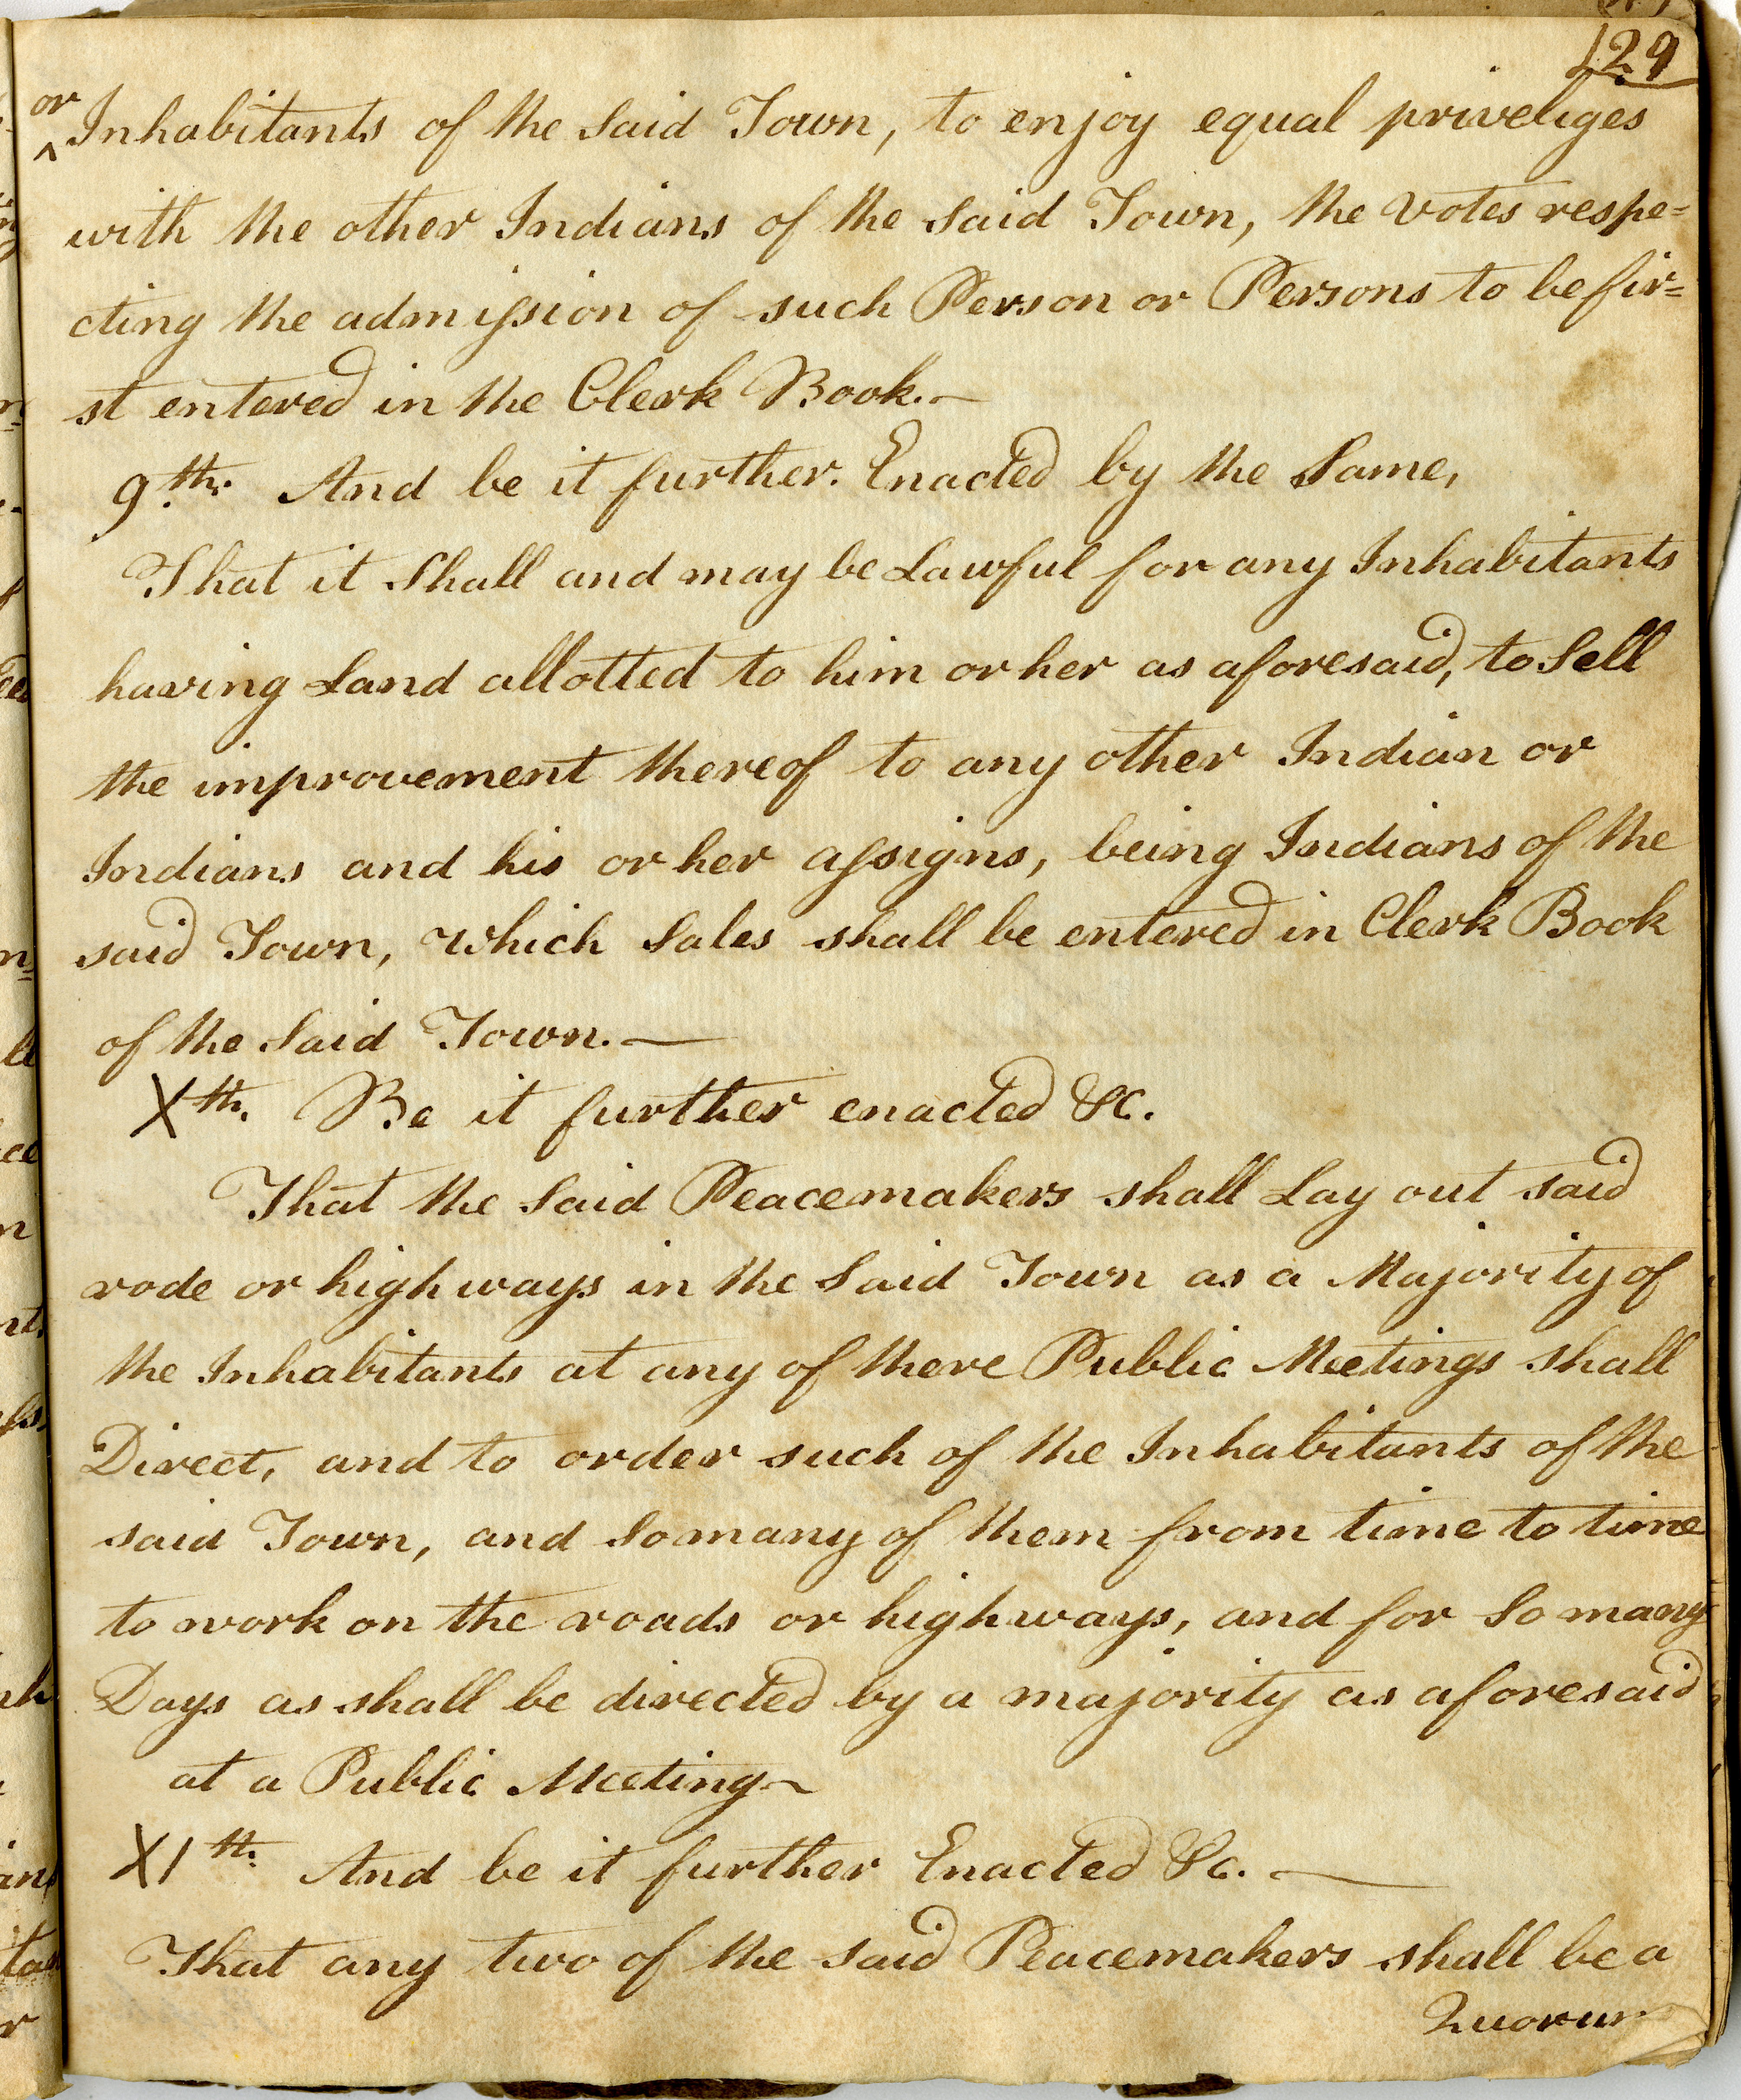 129
or
^Inhabitants of the said Town, to enjoy equal priveliges
with the other Indians of the said Town, the votes respe=
cting the admission of such Person or Persons to be fir=
st entered in the Clerk Book.—
9th. And be it further. Enacted by the Same,
That it Shall and may be Lawful for any Inhabitants
having Land allotted to him or her as aforesaid, to Sell
the improvement thereof to any other Indian or
Indians and his or her assigns, being Indians of the
said Town, which Sales shall be entered in Clerk Book
of the said Town.—
Xth. Be it further enacted &c.
That the said Peacemakers shall Lay out said
rode or high ways in the Said Town as a Majority of
the Inhabitants at any of there Public Meetings shall
Direct, and to order such of the Inhabitants of the
said Town, and so many of them from time to time
to work on the roads or high ways, and for so many
Days as shall be directed by a majority as aforesaid
at a Public Meeting~
XIth. And be it further Enacted &c.—
That any two of the said Peacemakers shall be a
Quorum